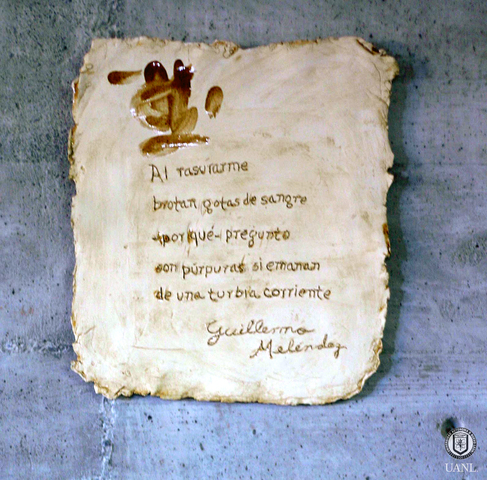 Al rasurarme
brotan gotas de sangre
-por qué- pregunto
son púrpuras si emanan
de una turbia corriente
Guillermo
Meléndez
UANL